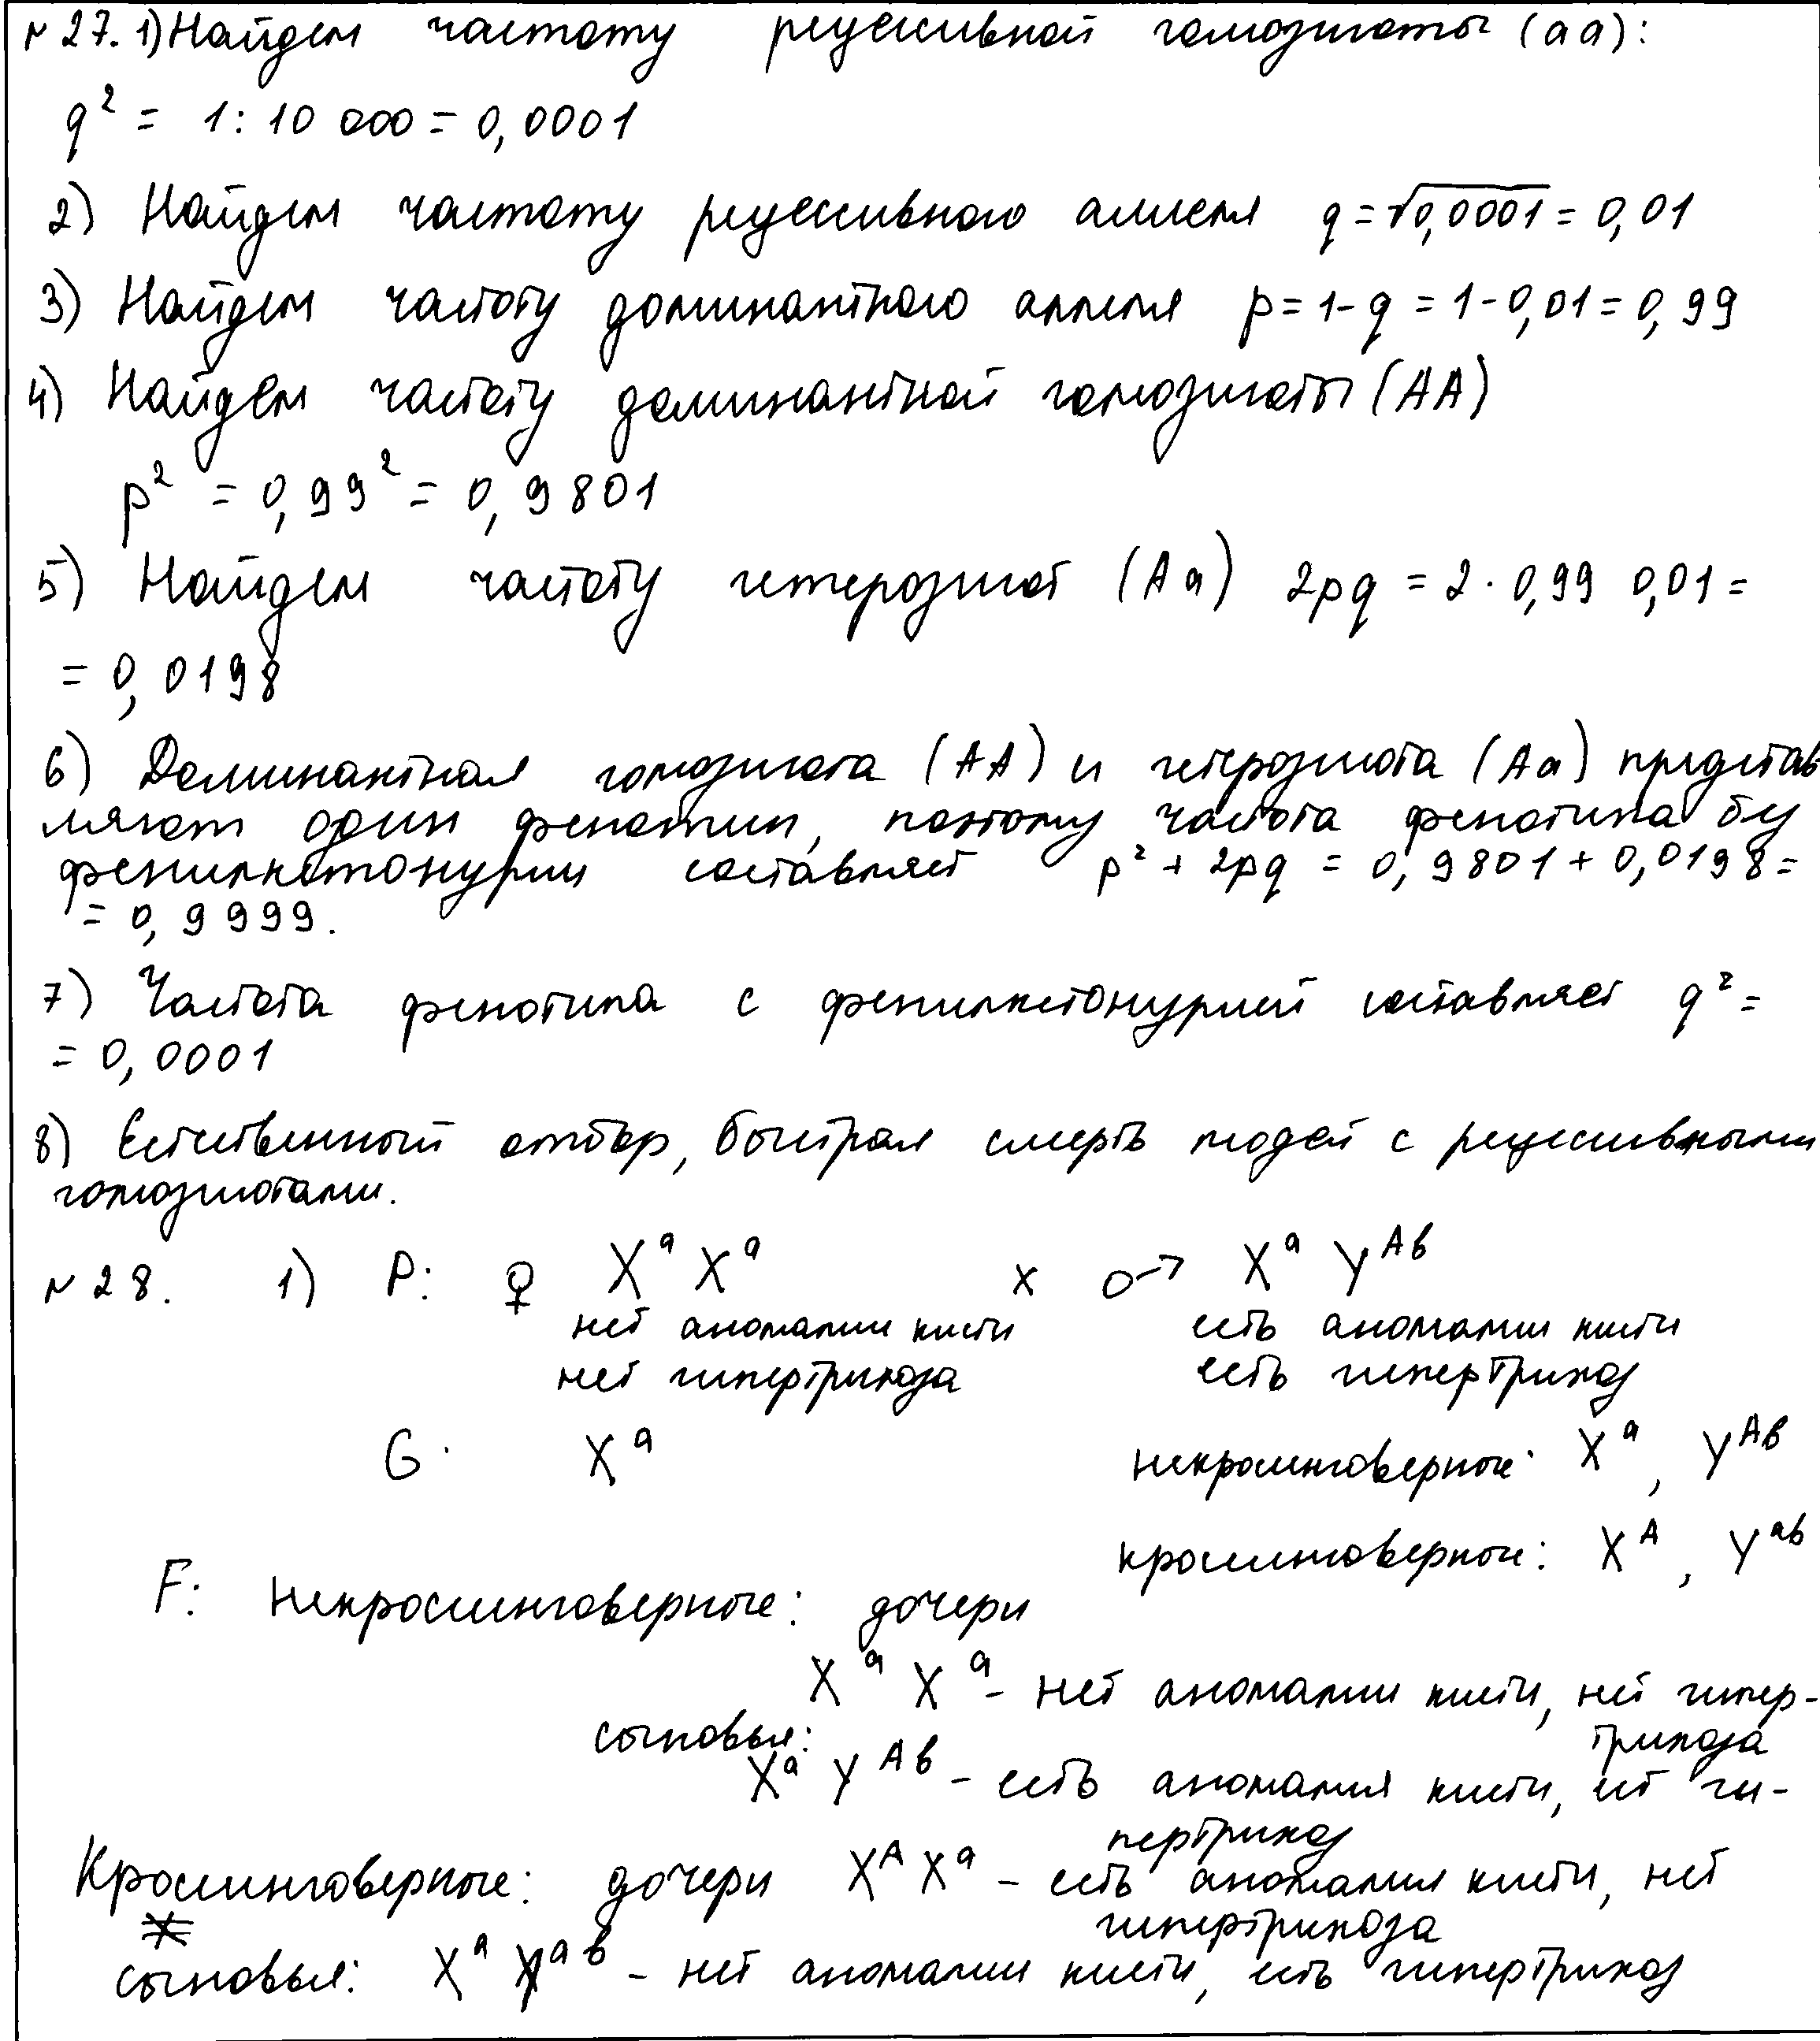 № 27. 1) Найдем частоту рецессивной гомозиготы (аа):
q² = 1 : 10 000 = 0,0001
2) Найдем частоту рецессивного аллеля q = √0,0001 = 0,01
3) Найдем частоту доминантного аллеля p = 1 - q = 1 - 0,01 = 0,99
4) Найдем частоту доминантной гомозиготы (АА)
p² = 0,99² = 0,9801
5) Найдем частоту гетерозигот (Аа) 2pq = 2 · 0,99 0,01 =
= 0,0198
6) Доминантная гомозигота (АА) и гетерозигота (Аа) представ
ляют один фенотип, поэтому частота фенотипа бу
фенилкетонурии составляет p² + 2pq = 0,9801 + 0,0198 =
= 0,9999.
7) Частота фенотипа с фенилкетонурией составляет q² =
= 0,0001
8) Естественный отбор, быстрая смерть людей с рецессивными
гомозиготами.
№ 28. 1) P: ♀ XᵃXᵃ x ♂ Xᵃ Yᴬᵇ
нет аномалии кисти есть аномалии кисти
нет гипертрихоза есть гипертрихоз
G: Xᵃ некроссинговерные: Xᵃ, Yᴬᵇ
кроссинговерные: Xᴬ, Yᵃᵇ
F: Некроссинговерные: дочери
XᵃXᵃ - нет аномалии кисти, нет гипер-
трихоза
сыновья:
XᵃYᴬᵇ - есть аномалия кисти, ест ги-
пертрихоз
Кроссинговерные: дочери XᴬXᵃ - есть аномалия кисти, нет
гипертрихоза
сыновья: XᵃYᵃᵇ - нет аномалии кисти, есть гипертрихоз